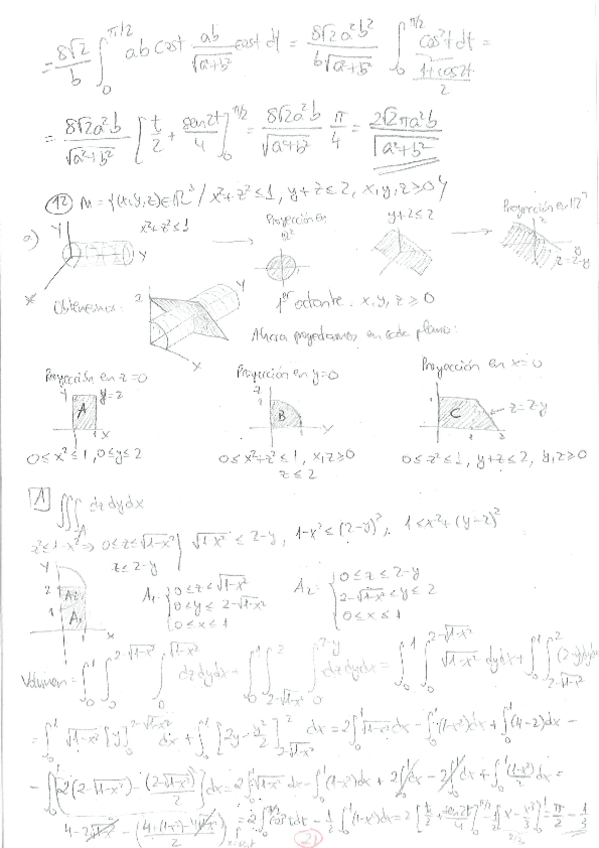 = 8√2/b ∫₀^{π/2} ab cost ab/√(a²+b²) cost dt = 8√2a²b²/(b√(a²+b²)) ∫₀^{π/2} cos²t dt =
(1+cos2t)/2
= 8√2a²b/√(a²+b²) [t/2 + sen2t/4]₀^{π/2} = 8√2a²b/√(a²+b²) π/4 = 2√2πa²b/√(a²+b²)
(12) M = {(x,y,z)∈ℝ³ / x²+z² ≤ 1, y+z ≤ 2, x,y,z ≥ 0}
a) Y x²+z² ≤ 1 Y X → Proyección en ℝ² y+z ≤ 2 → Proyección en z z=2-y
Obtenemos: 2 Y X 1er octante. x,y,z ≥ 0
Ahora proyectamos en cada plano:
Proyección en z=0 Proyección en y=0 Proyección en x=0
Y y=2 A 1 X
z 1 B 1
1 C z=2-y 1 2
0≤x²≤1, 0≤y≤2 0≤x²+z²≤1, x,z≥0 0≤z²≤1, y+z≤2, y,z≥0
z≤2
[A] ∭_A dzdydx
z²≤1-x² ⇒ 0≤z≤√(1-x²) | √(1-x²) ≤ 2-y, 1-x² ≤ (2-y)², 1<x²+(y-2)²
z≤2-y
Y 2 A₂ 1 A₁ X
A₁: { 0≤z≤√(1-x²) A₂: { 0≤z≤2-y
0≤y≤2-√(1-x²) 2-√(1-x²)≤y≤2
0≤x≤1 0≤x≤1
Volumen = ∫₀¹ ∫₀^{2-√(1-x²)} ∫₀^{√(1-x²)} dzdydx + ∫₀¹ ∫_{2-√(1-x²)}² ∫₀^{2-y} dzdydx = ∫₀¹ ∫₀^{2-√(1-x²)} √(1-x²) dydx + ∫₀¹ ∫_{2-√(1-x²)}² (2-y)dydx
= ∫₀¹ √(1-x²) [y]₀^{2-√(1-x²)} dx + ∫₀¹ [2y - y²/2]_{2-√(1-x²)}² dx = 2∫₀¹ √(1-x²) dx - ∫₀¹ (1-x²)dx + ∫₀¹ (4-2)dx -
- ∫₀¹ [2(2-√(1-x²)) - (2-√(1-x²))²/2] dx = 2∫₀¹ √(1-x²) dx - ∫₀¹ (1-x²)dx + 2∫₀¹ dx - 2∫₀¹ dx + ∫₀¹ (1-x²)/2 dx =
4-2√(1-x²) - (4+(1-x²)-4√(1-x²))/2 = 2∫₀^{π/2} cos²t dt - 1/2 ∫₀¹ (1-x²)dx = 2[t/2 + sen2t/4]₀^{π/2} - 1/2 [x - x³/3]₀¹ = π/2 - 1/3
2/3
21